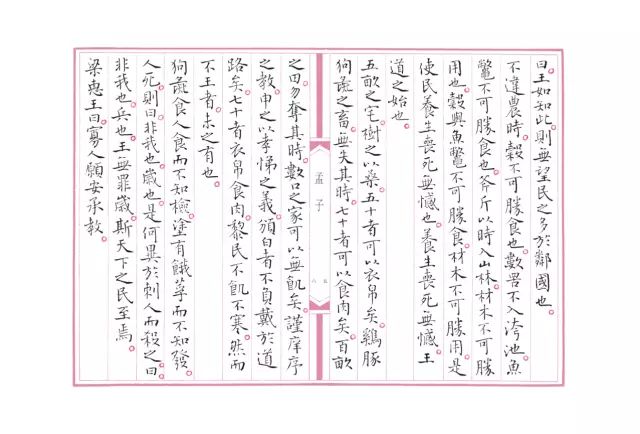 曰王如知此則無望民之多於鄰國也
不違農時穀不可勝食也數罟不入洿池魚
鼈不可勝食也斧斤以時入山林材木不可勝
用也穀與魚鼈不可勝食材木不可勝用是
使民養生喪死無憾也養生喪死無憾王
道之始也
五畝之宅樹之以桑五十者可以衣帛矣鷄豚
狗彘之畜無失其時七十者可以食肉矣百畝
孟子
六五
之田勿奪其時數口之家可以無飢矣謹庠序
之教申之以孝悌之義頒白者不負戴於道
路矣七十者衣帛食肉黎民不飢不寒然而
不王者未之有也
狗彘食人食而不知檢塗有餓莩而不知發
人死則曰非我也歲也是何異於刺人而殺之曰
非我也兵也王無罪歲斯天下之民至焉
梁惠王曰寡人願安承教